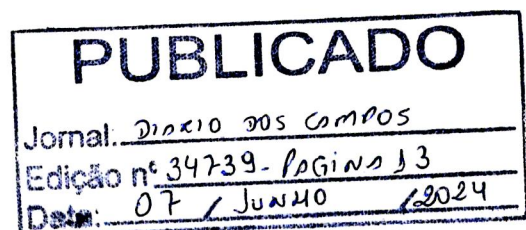 PUBLICADO
Jornal: DIARIO DOS CAMPOS
Edição nº 34739 - PAGINA 13
Data: 07 / JUNHO /2024